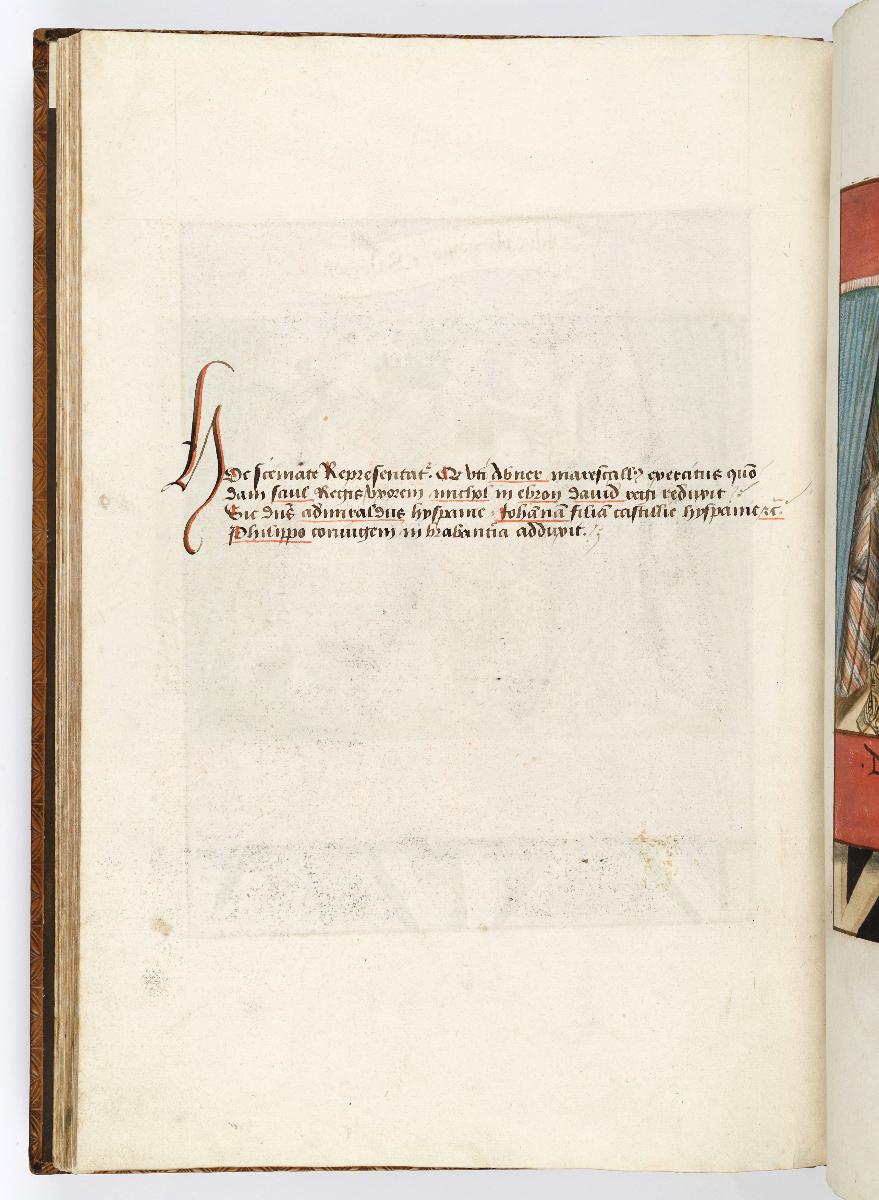 Hoc scemate Representat᷑. Q vti Abner marescall⁹ exercitus quō
dam saul Regis vxorem michol in ebron david regi reduxit
Sic dn̄s admiraldus hyspanie Johān̄ā filiā castillie hyspanie ⁊c̄.
Philippo coniugem in brabantia adduxit.